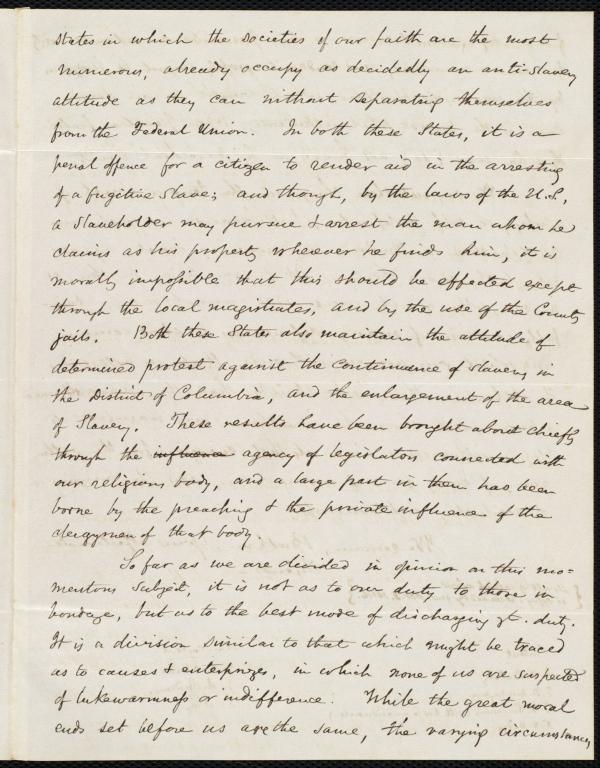 States in which the Societies of our faith are the most
numerous, already occupy as decidedly an anti-slavery
attitude as they can without separating themselves
from the Federal Union. In both these States, it is a
penal offence for a citizen to render aid in the arresting
of a fugitive slave; and though, by the laws of the U.S.,
a slaveholder may pursue & arrest the man whom he
claims as his property wherever he finds him, it is
morally impossible that this should be effected except
through the local magistrates, and by the use of the County
jails. Both these States also maintain the attitude of
determined protest against the continuance of slavery in
the District of Columbia, and the enlargement of the area
of Slavery. These results have been brought about chiefly
through the influence agency of legislators connected with
our religious body, and a large part in them has been
borne by the preaching & the private influence of the
clergymen of that body.
So far as we are divided in opinion on this mo=
mentous subject, it is not as to our duty to those in
bondage, but as to the best mode of discharging yt. duty.
It is a division similar to that which might be traced
as to causes & enterprizes, in which none of us are suspected
of lukewarmness or indifference. While the great moral
ends set before us are the same, the varying circumstances